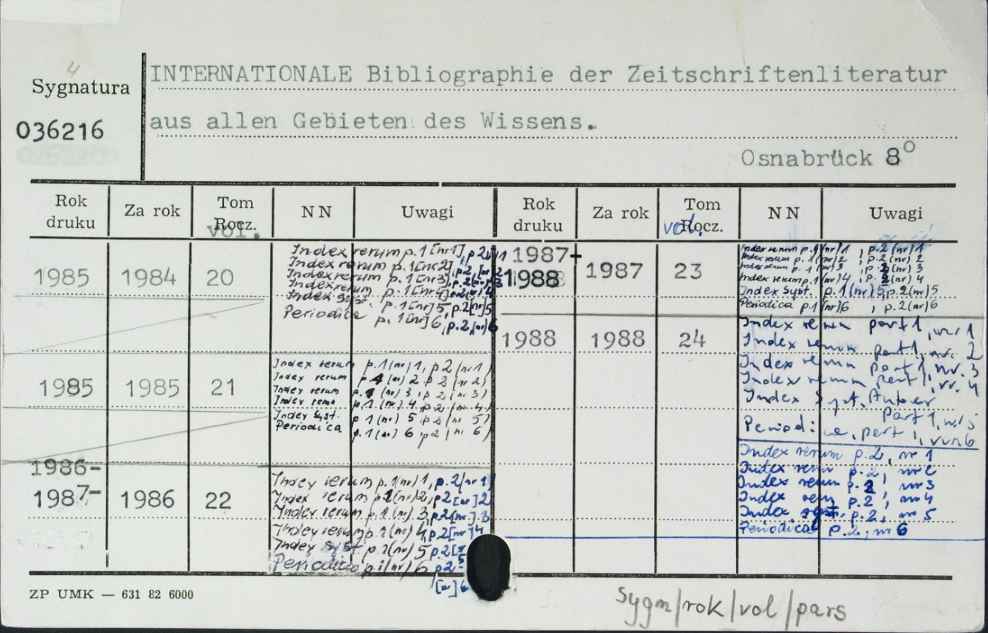 4
Sygnatura
036216
INTERNATIONALE Bibliographie der Zeitschriftenliteratur
aus allen Gebieten des Wissens.
Osnabrück 8°
Rok druku | Za rok | Tom Rocz. vol. | NN | Uwagi | Rok druku | Za rok | Tom Rocz. vol. | NN | Uwagi
1985 | 1984 | 20
Index rerum p.1 [nr 1], p.2
Index rerum p.1 [nr 2], p.2
Index rerum p.1 [nr 3], p.2
Index rerum p.1 [nr 4]
Index Syst. p.1 [nr] 5, p.2 [nr] 5
Periodica p.1 [nr] 6, p.2 [nr] 6
1985 | 1985 | 21
Index rerum p.1 (nr) 1, p.2 (nr 1)
Index rerum p.1 (nr) 2 p.2 (nr 2)
Index rerum p.1 (nr) 3, p.2 (nr 3)
Index rerum p.1 (nr) 4, p.2 (nr 4)
Index Syst. p.1 (nr) 5 p.2 (nr 5)
Periodica p.1 (nr) 6, p.2 (nr 6)
1986-
1987- | 1986 | 22
Index rerum p.1 (nr) 1, p.2 (nr 1)
Index rerum p.1 (nr) 2, p.2 [nr] 2
Index rerum p.1 (nr) 3, p.2 [nr] 3
Index rerum p.1 (nr) 4, p.2 [nr] 4
Index Syst p.1 (nr) 5 p.2 [nr] 5
Periodica p.1 (nr) 6 p.2
[nr] 6
1987-
1988 | 1987 | 23
Index rerum p.1 (nr) 1, p.2 (nr) 1
Index rerum p.1 (nr) 2, p.2 (nr) 2
Index rerum p.1 (nr) 3, p.2 (nr) 3
Index rerum p.1 (nr) 4, p.2 (nr) 4
Index Syst. p.1 (nr) 5, p.2 (nr) 5
Periodica p.1 (nr) 6, p.2 (nr) 6
1988 | 1988 | 24
Index rerum part 1, nr 1
Index rerum part 1, nr. 2
Index rerum part 1, nr. 3
Index rerum part 1, nr. 4
Index Syst.
part 1, nr 5
Periodica, part 1, nr 6
Index rerum p.2, nr 1
Index rerum p.2, nr 2
Index rerum p.2, nr 3
Index rerum p.2, nr 4
Index syst. p.2, nr 5
Periodica p.2, nr 6
ZP UMK — 631 82 6000
Sygn/rok/vol/pars